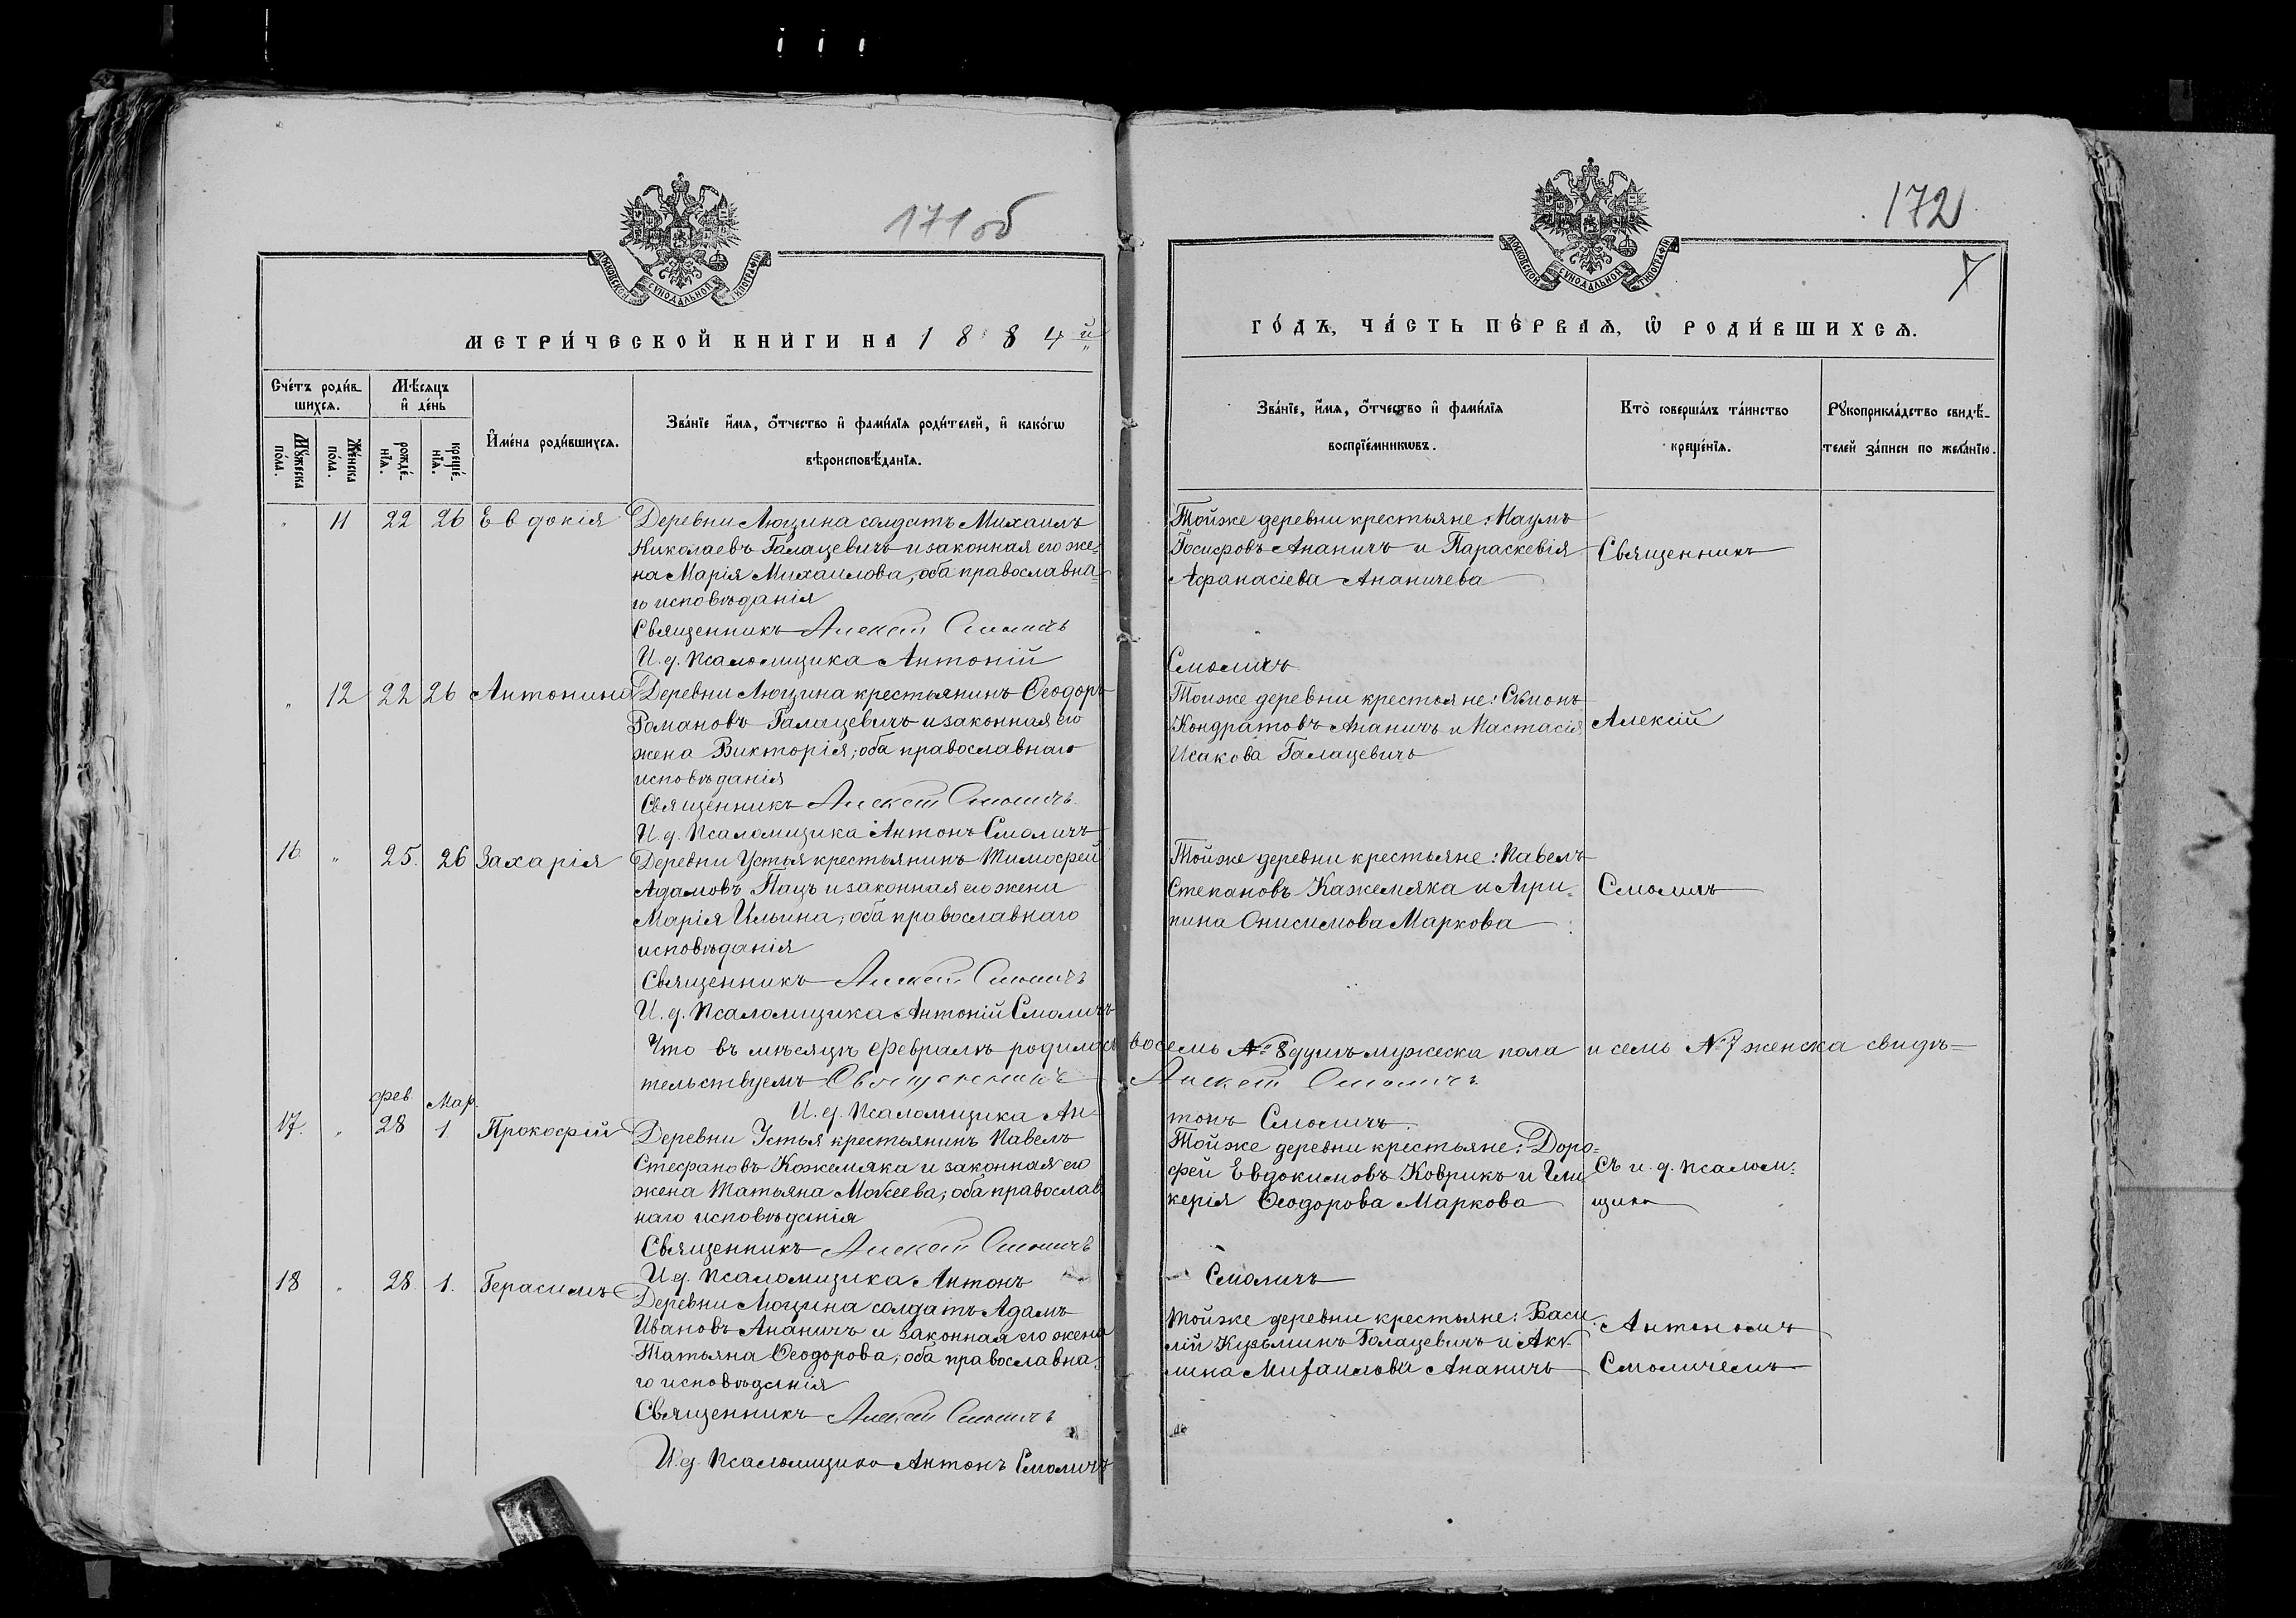 171 об
МЕТРИ́ЧЕСКОЙ КНИ́ГИ НА 1884 й
Сче́тъ роди́в-
шихся.
Мѣ́сяцъ
и҆ де́нь
Мꙋ́жеска
по́ла.
Же́нска
по́ла.
рожде́-
нїѧ.
креще́-
нїѧ.
И҆мена̀ роди́вшихсѧ.
Зва́нїе и҆́мѧ, ѻ҆́тчество и҆ фами́лїѧ роди́телей, и҆ како́гѡ
вѣроисповѣ́данїѧ.
" 11 22 26 Евдокія
Деревни Лющина солдатъ Михаилъ
Николаевъ Галацевичъ и законная его же-
на Марія Михаилова, оба православна-
го исповѣданія
Священникъ Алексій Смоличъ
И. д. Псаломщика Антоній
" 12 22 26 Антонина
Деревни Лющина крестьянинъ Ѳеодоръ
Романовъ Галацевичъ и законная его
жена Викторія; оба православнаго
исповѣданія
Священникъ Алексій Смоличъ
И. д. Псаломщика Антонъ Смоличъ
16 " 25. 26 Захарія
Деревни Устья крестьянинъ Тимофей
Адамовъ Пацъ и законная его жена
Марія Ильина, оба православнаго
исповѣданія
Священникъ Алексій Смоличъ
И. д. Псаломщика Антоній Смоличъ
Что въ мѣсяцѣ Февралѣ родилось восемь № 8 душъ мужеска пола и семь № 7 женска свидѣ=
тельствуемъ Священникъ Алексій Смоличъ
И. д. Псаломщика Ан-
тонъ Смоличъ.
фев. Мар.
17. " 28 1. Прокофій
Деревни Устья крестьянинъ Павелъ
Стефановъ Кожемяка и законная его
жена Татьяна Мокеева; оба православ
наго исповѣданія
Священникъ Алексій Смоличъ
И. д. Псаломщика Антонъ
18 " 28. 1. Герасимъ
Деревни Лющина солдатъ Адамъ
Ивановъ Ананичъ и законная его жена
Татьяна Ѳеодорова, оба православна-
го исповѣданія
Священникъ Алексій Смоличъ
И. д. Псаломщика Антонъ Смоличъ
172
7
ГО́ДЪ, ЧА́СТЬ ПЕ́РВАѦ, Ѡ҆ РОДИ́ВШИХСѦ.
Зва́нїе, и҆́мѧ, ѻ҆́тчество и҆ фами́лїѧ
воспрїе́мникѡвъ.
Кто̀ соверша́лъ та́инство
креще́нїѧ.
Рꙋкоприкла́дство свидѣ́-
телей за́писи по жела́нїю.
Тойже деревни крестьяне: Наумъ
Іосифовъ Ананичъ и Параскевія
Афанасіева Ананичева
Священникъ
Смоличъ
Тойже деревни крестьяне: Симонъ
Кондратовъ Ананичъ и Настасія
Исакова Галацевичъ
Алексій
Тойже деревни крестьяне: Павелъ
Степановъ Кажемяка и Агри-
пина Онисимова Маркова
Смоличъ
Тойже деревни крестьяне: Доро-
фей Евдокимовъ Коврикъ и Гли
керія Ѳеодорова Маркова
Съ и. д. псалом-
щика
Смоличъ
Тойже деревни крестьяне: Васи
лій Кузьминъ Галацевичъ и Аку
лина Михаилова Ананичъ
Антономъ
Смоличемъ